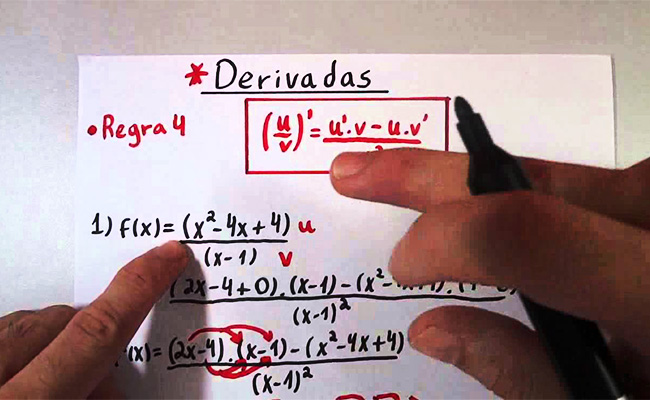 * Derivadas
• Regra 4
(u/v)' = u'.v - u.v'
1) f(x) = (x² - 4x + 4) u
(x - 1) v
(2x - 4 + 0).(x - 1) - (x²
(x - 1)²
(x) = (2x - 4).(x - 1) - (x² - 4x + 4)
(x - 1)²